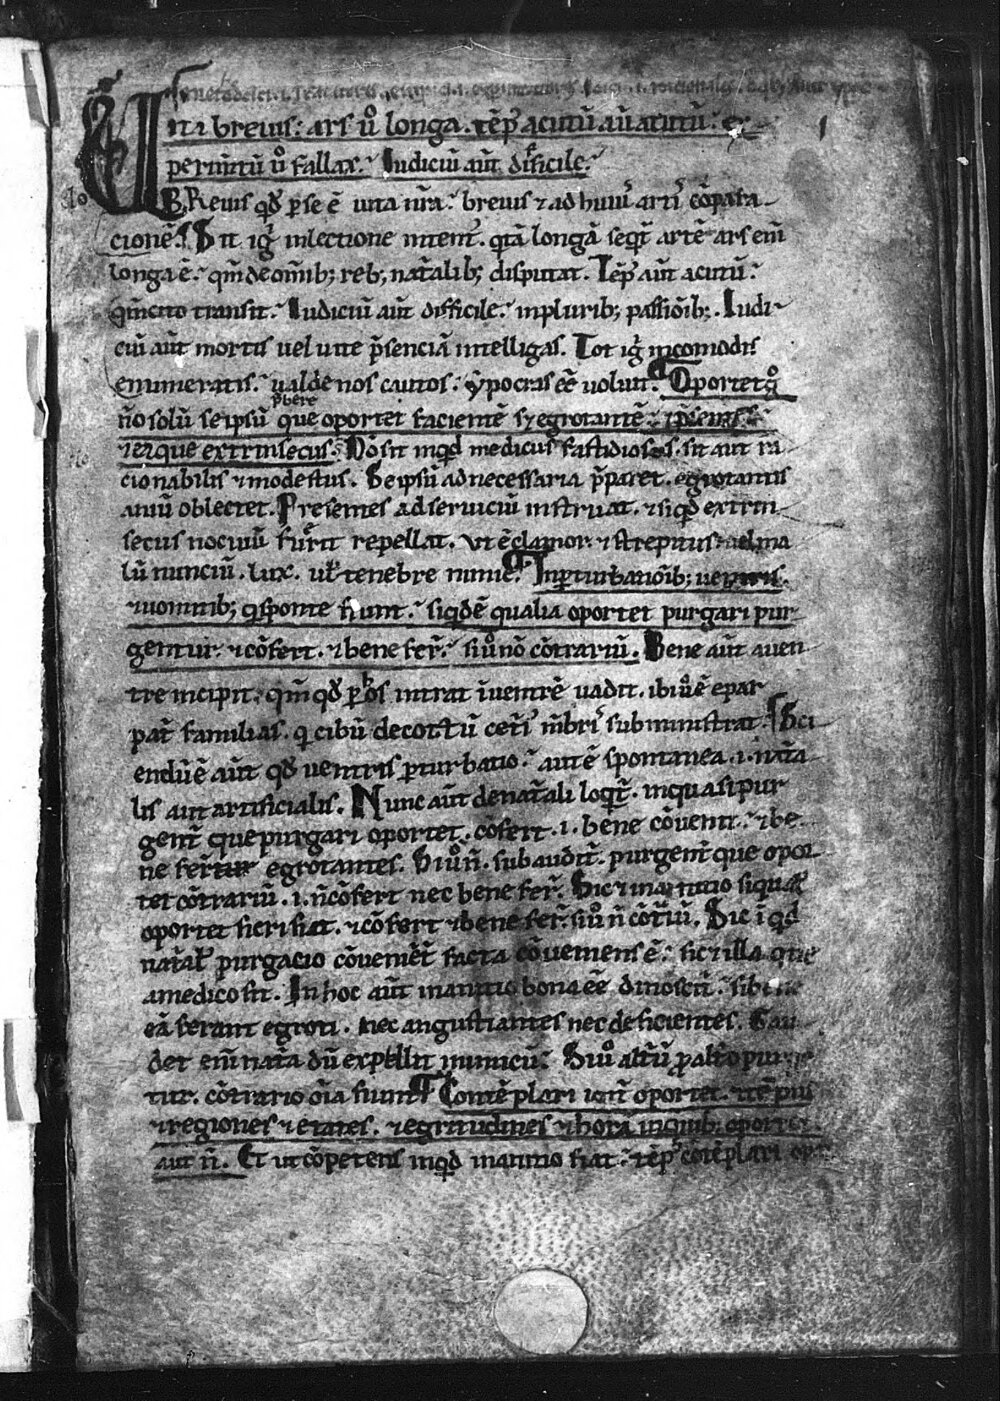 Vita breuis: ars ũ longa. tẽp' acutũ. aut̃ acutũ: ex
perim̃tũ ũ fallax. Iudiciũ aut̃ difficile.
BReuis qd̃ p̱ se ẽ uita nr̃a. breuis ⁊ ad huiꝰ artiſ cõpara
cionẽ. Sit igr̃ in lectione intentꝰ. qtã longã seqt̃ artẽ ars enĩ
longa ẽ. qm̃ de om̃ib; reb; nat̃alib; disputat. Tẽp' aut̃ acutũ.
qm̃ cito transit. Iudiciũ aut̃ difficile. in plurib; passiõib;. Iudi
ciũ aut̃ mortis uel uite p̃senciã intelligas. Tot igr̃ incomodis
enumeratis. ualde nos cautos. ypocras eẽ uoluit. Oportet g̊
p̱bere
ño solũ seipsũ que oportet facientẽ s; ⁊ egrotantẽ. ⁊ p̃sentes
⁊ ea que extrinsecus. Nõ sit inqd̃ medicus fastidiosus. sit aut̃ ra
cionabilis ⁊ modestus. Seipsũ ad necessaria p̃paret. egrotantis
animũ oblectet. Presentes ad seruiciũ instruat. ⁊ siqd̃ extrin
secus nociuũ fuerit repellat. ut ẽ clamor. ⁊ strepitus uel ma
lũ nunciũ. lux. ul' tenebre nimie. In p̱turbatiõib; uentris.
⁊ uomitib; q̃ sponte fiunt. siqd̃ẽ qualia oportet purgari pur
gentur. ⁊ cõfert. ⁊ bene fer̃. si ũ nõ cõtrariũ. Bene aut̃ a uen
tre incipit. qm̃ qd̃ p̱ os intrat in uentrẽ uadit. ibi uẽ epar
pat̃ familias. q̃ cibũ decoctũ cet̃iſ mẽbriſ subministrat. Sci
endũ ẽ aut̃ qd̃ uentris p̱turbatio. aut ẽ spontanea .i. nat̃a
lis aut artificialis. Nunc aut̃ de nat̃ali loqt̃. inqua si pur
gent̃ que purgari oportet. cõfert .i. bene cõuenit. ⁊ be
ne fer̃tur egrotantes. Si ũ ñ. subaudit̃. purgent̃ que opor
tet cõtrariũ .i. ñ cõfert nec bene fer̃. Sic ⁊ inanitio si qual'
oportet fieri fiat. ⁊ cõfert ⁊ bene fer̃. si ũ ñ cõt̃iũ. Sic inqd̃
nat̃al' purgacio cõuenient̃ facta cõueniens ẽ: sic ⁊ illa que
a medico fit. In hoc aut̃ inanitio bona eẽ dinoscit̃. si bene
eã ferant egroti. nec angustiantes nec deficientes. Gau
det enĩ nat̃a dũ expellit inimicũ.
tur. cõtrario om̃ia fiunt. Contẽplari igit̃ oportet. ⁊ tẽpus
⁊ regiones ⁊ etates. ⁊ egritudines ⁊ hora in quib; oportet
aut ñ. Et ut cõpetens inqd̃ inanitio fiat. tẽp' cõtẽplari